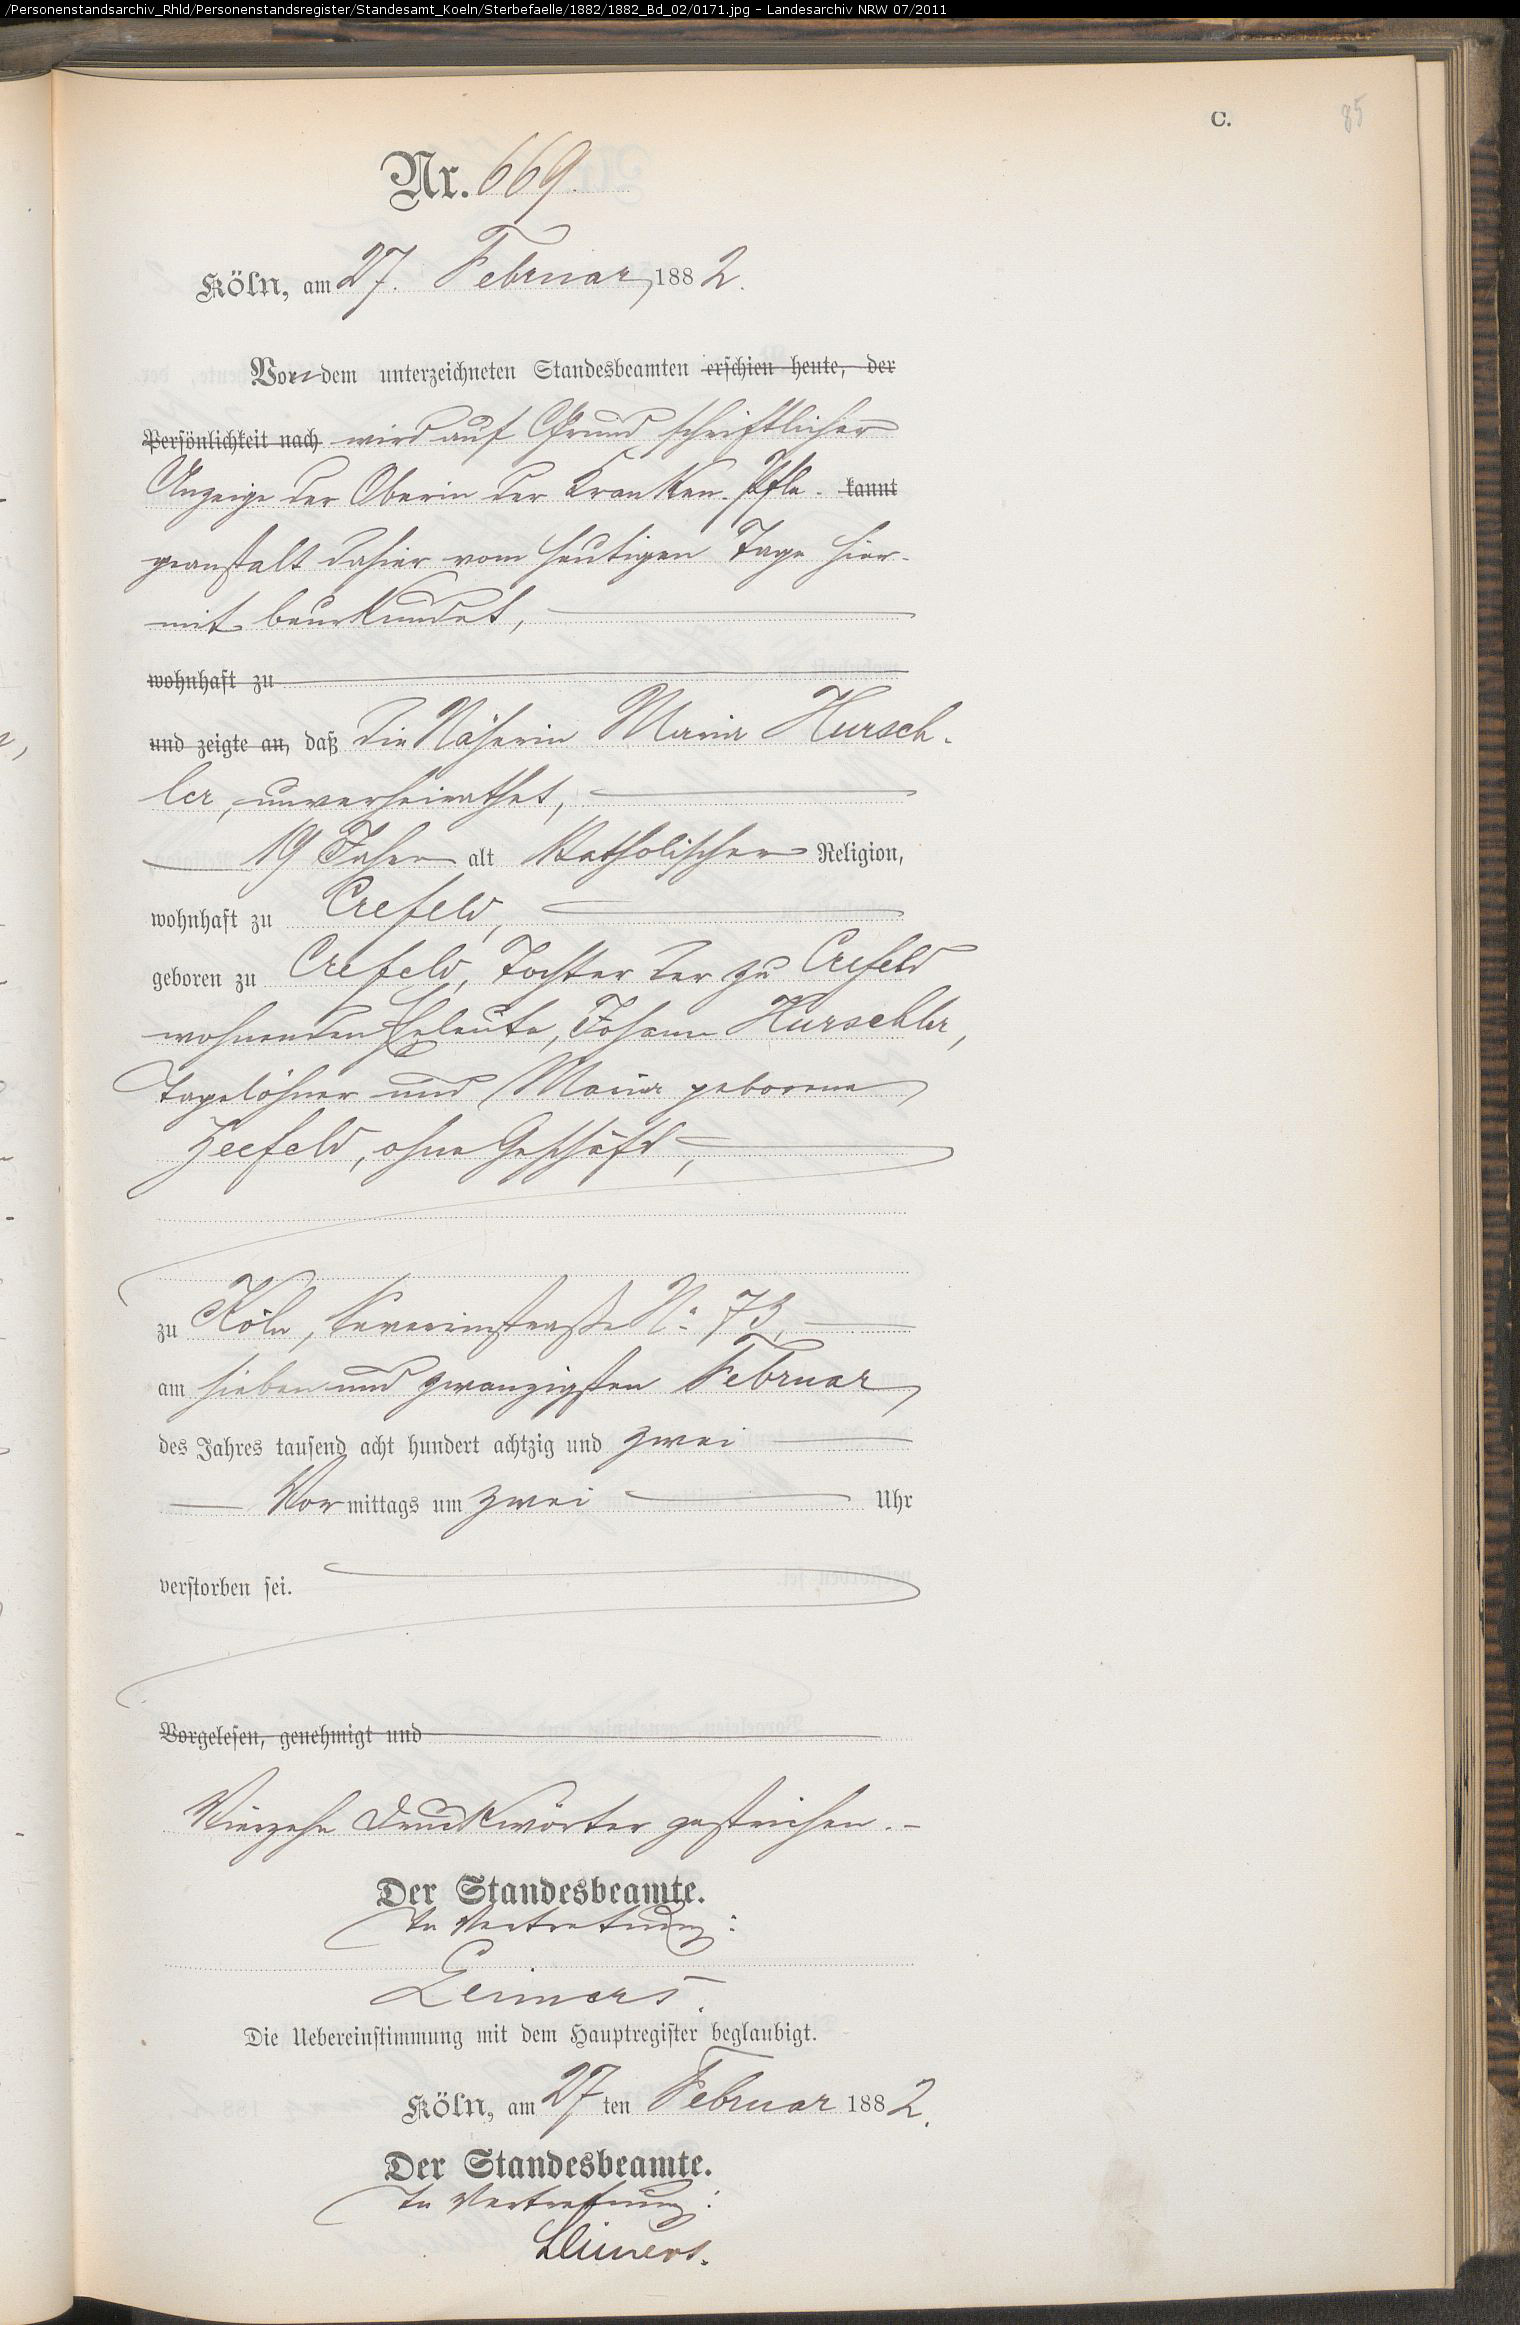 /Personenstandsarchiv_Rhld/Personenstandsregister/Standesamt_Koeln/Sterbefaelle/1882/1882_Bd_02/0171.jpg - Landesarchiv NRW 07/2011
C.
85
Nr. 669.
Köln, am 27. Februar 1882.
Von dem unterzeichneten Standesbeamten erschien heute, der
Persönlichkeit nach wird auf Grund schriftlicher
Anzeige der Oberin der Kranken-Pfle- kannt
geanstalt dahier vom heutigen Tage hier-
mit beurkundet,
wohnhaft zu
und zeigte an, daß die Näherin Maria Hursch-
ler, unverheirathet,
19 Jahre alt katholischer Religion,
wohnhaft zu Crefeld,
geboren zu Crefeld, Tochter der zu Crefeld
wohnenden Eheleute, Johann Hurschler,
Tagelöhner und Maria geborene
Zeefeld, ohne Geschäft,
zu Köln, Severinstraße No 73,
am sieben und zwanzigsten Februar
des Jahres tausend acht hundert achtzig und zwei
Vormittags um zwei Uhr
verstorben sei.
Vorgelesen, genehmigt und
Vierzehn Druckwörter gestrichen.-
Der Standesbeamte.
In Vertretung:
Die Uebereinstimmung mit dem Hauptregister beglaubigt.
Köln, am 27ten Februar 1882.
Der Standesbeamte.
In Vertretung: